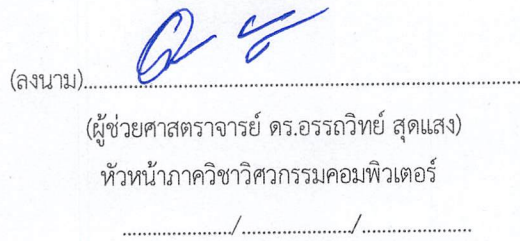 (ลงนาม)..........................................................................
(ผู้ช่วยศาสตราจารย์ ดร.อรรถวิทย์ สุดแสง)
หัวหน้าภาควิชาวิศวกรรมคอมพิวเตอร์
........................./........................./.........................